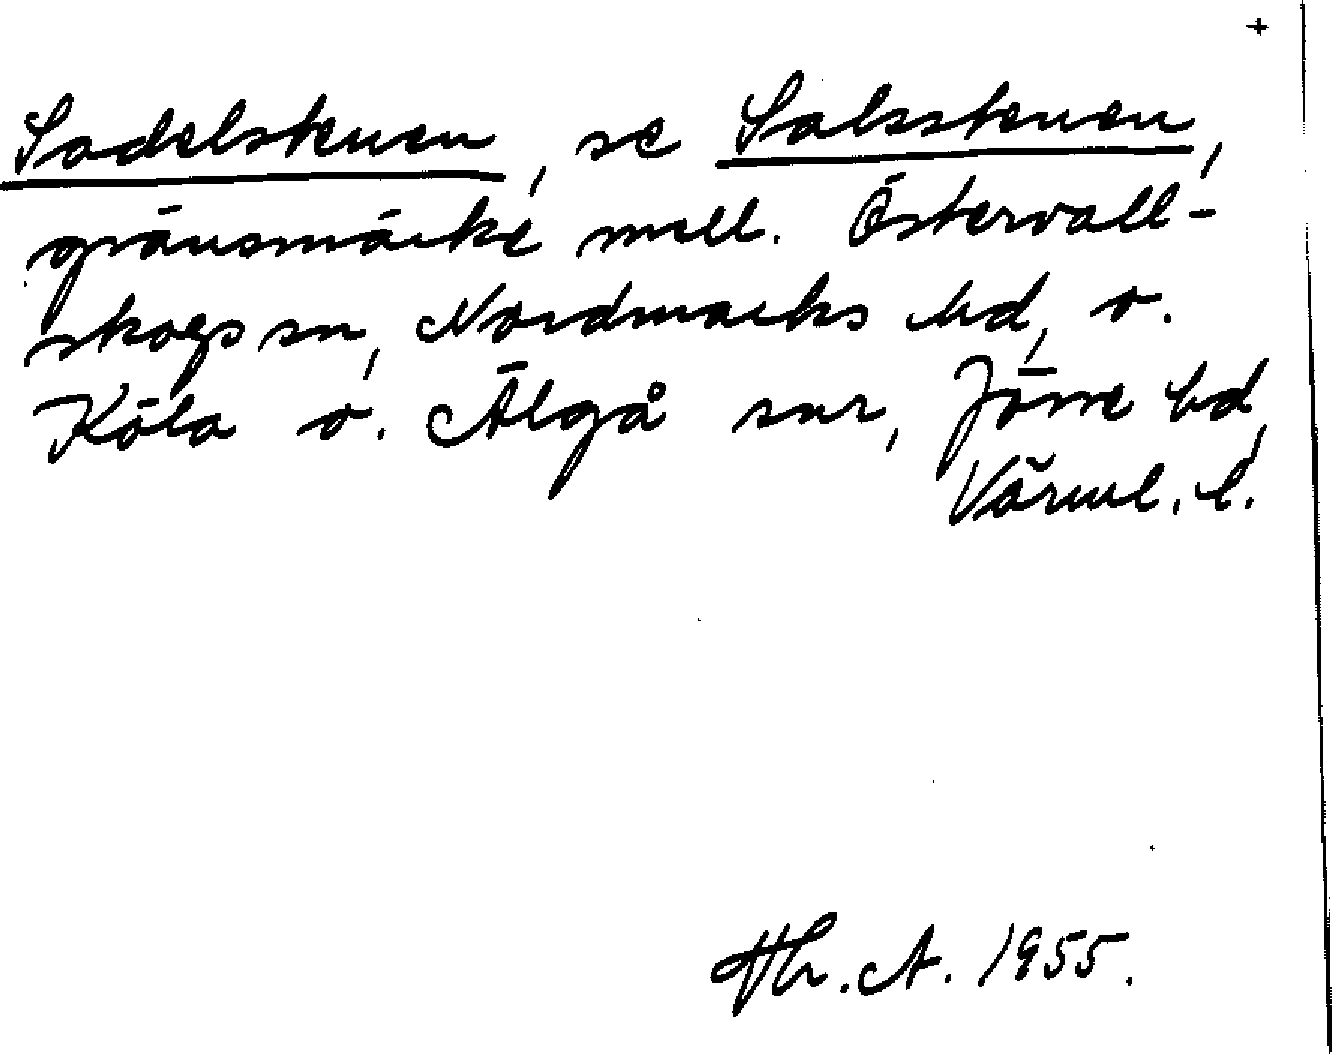 +
Sadelstenen, se Salsstenen,
gränsmärke mell. Östervall-
skogs sn, Nordmarks hd, o.
Köla o. Älgå snr, Jösse hd,
Värml. l.
Hh. A. 1955.